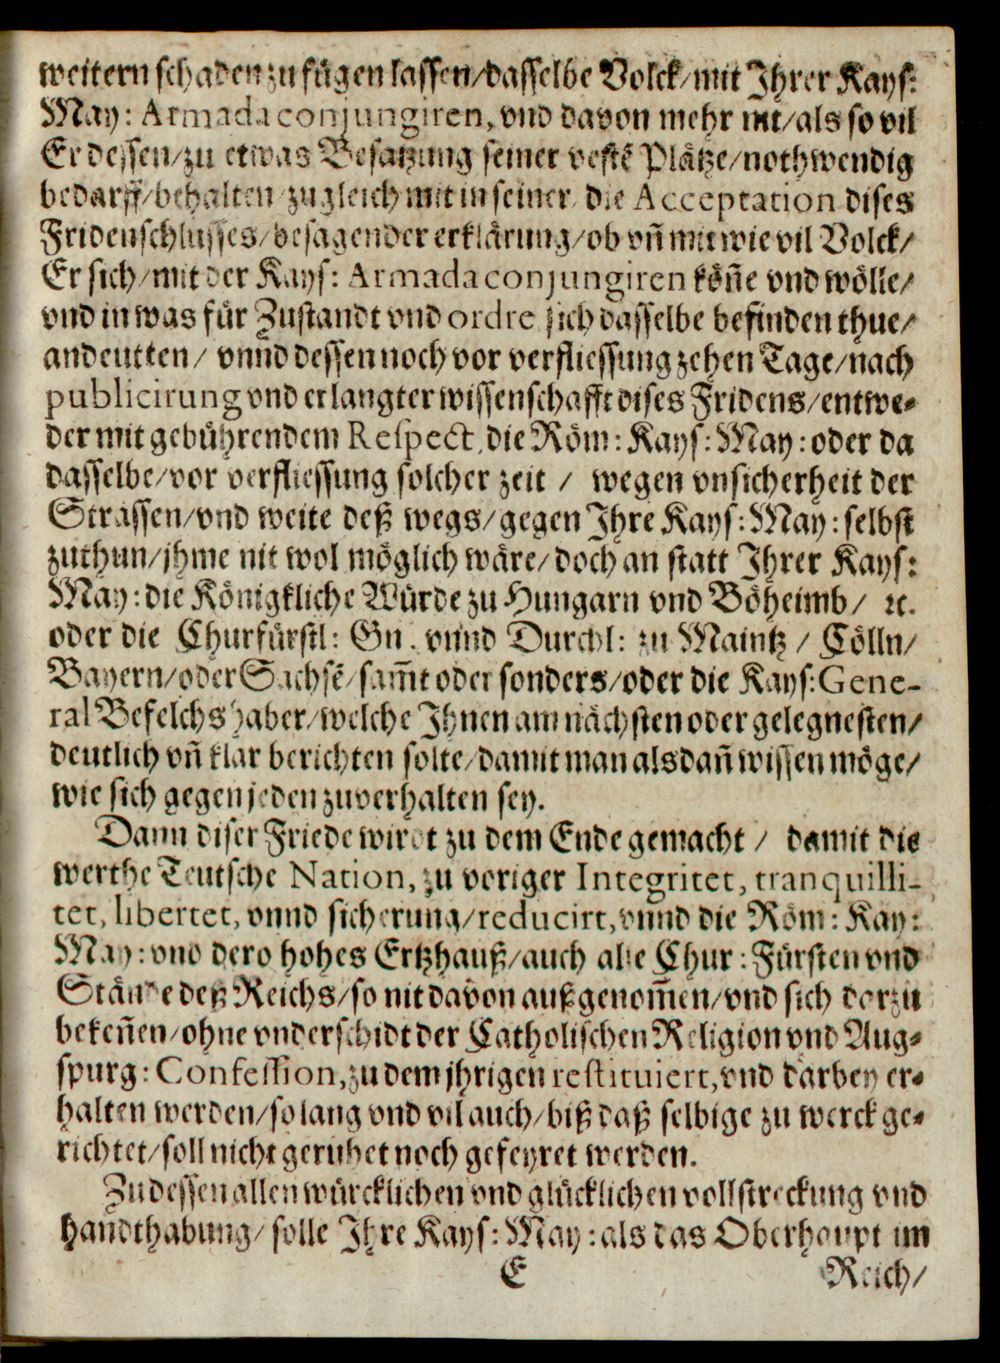 weitern schaden zu fügen lassen/dasselbe Volck/mit Ihrer Kays:
May: Armada conjungiren, vnd davon mehr nit/als so vil
Er dessen/zu etwas Besatzung seiner vestẽ Plätze/nothwendig
bedarff/behalten/zugleich mit in seiner, die Acceptation dises
Fridenschlusses/besagender erklärung/ob vñ mit wie vil Volck/
Er sich/mit der Kays: Armada conjungiren köñe vnd wölle/
vnd in was für Zustandt vnd ordre sich dasselbe befinden thue/
andeutten/ vnnd dessen noch vor verfliessung zehen Tage/nach
publicirung vnd erlangter wissenschafft dises Fridens/entwe-
der mit gebührendem Respect, die Röm: Kays: May: oder da
dasselbe/vor verfliessung solcher zeit / wegen vnsicherheit der
Strassen/vnd weite deß wegs/gegen Ihre Kays: May: selbst
zuthun/jhme nit wol möglich wäre/doch an statt Ihrer Kays:
May: die Königkliche Würde zu Hungarn vnd Böheimb/ ꝛc.
oder die Churfürstl: Gn. vnnd Durchl: zu Maintz / Cölln/
Bayern/oder Sachsẽ/sam̃t oder sonders/oder die Kays: Gene-
ral Befelchshaber/welche Ihnen am nächsten oder gelegnesten/
deutlich vñ klar berichten solte/damit man alsdañ wissen möge/
wie sich gegen jeden zuverhalten sey.
Dann diser Friede wirdt zu dem Ende gemacht / damit die
werthe Teutsche Nation, zu voriger Integritet, tranquilli-
tet, libertet, vnnd sicherung/reducirt, vnnd die Röm: Kay:
May: vnd dero hohes Ertzhauß/auch alle Chur: Fürsten vnd
Stände deß Reichs/so nit davon außgenom̃en/vnd sich darzu
bekeñen/ohne vnderschidt der Catholischen Religion vnd Aug-
spurg: Confession, zu dem jhrigen restituiert, vnd darbey er-
halten werden/so lang vnd vil auch/biß daß selbige zu werck ge-
richtet/soll nicht geruhet noch gefeyret werden.
Zu dessen allen würcklichen vnd glücklichen vollstreckung vnd
handthabung/ solle Ihre Kays: May: als das Oberhaupt im
E Reich/